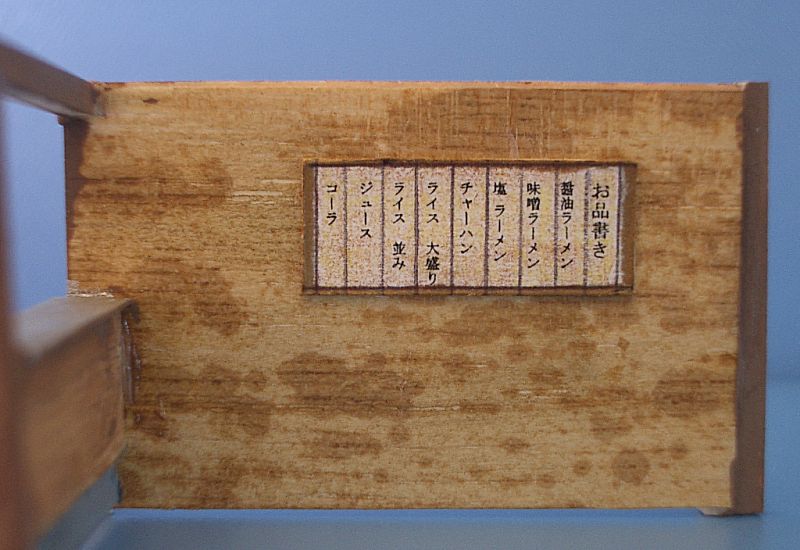 お品書き
醤油ラーメン
味噌ラーメン
塩 ラーメン
チャーハン
ライス 大盛り
ライス 並み
ジュース
コーラ